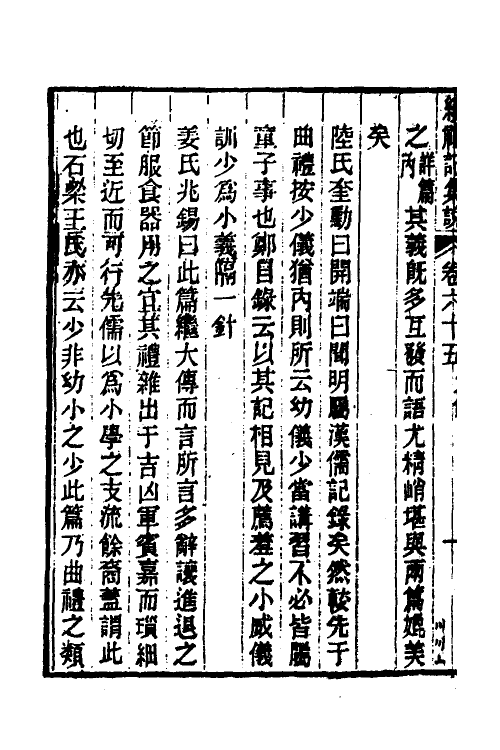 續禮記集說 卷六十五
之詳篇內其義旣多互發而語尤精峭堪與兩篇媲美
矣
陸氏奎勳曰開端曰聞明屬漢儒記錄矣然較先于
曲禮按少儀猶內則所云幼儀少當講習不必皆屬
童子事也鄭目錄云以其記相見及薦羞之小威儀
訓少爲小義隔一針
姜氏兆錫曰此篇繼大傳而言所言多辭讓進退之
節服食器用之宜其禮雜出于吉凶軍賓嘉而瑣細
切至近而可行先儒以爲小學之支流餘裔蓋謂此
也石梁王氏亦云少非幼小之少此篇乃曲禮之類